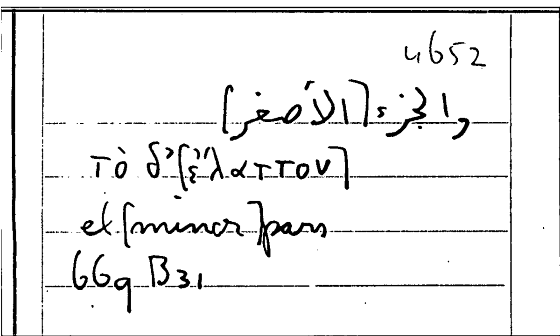 4652
والجزء [الأصغر]
τὸ δ' [ἔλαττον]
et [minor] pars
669 B31